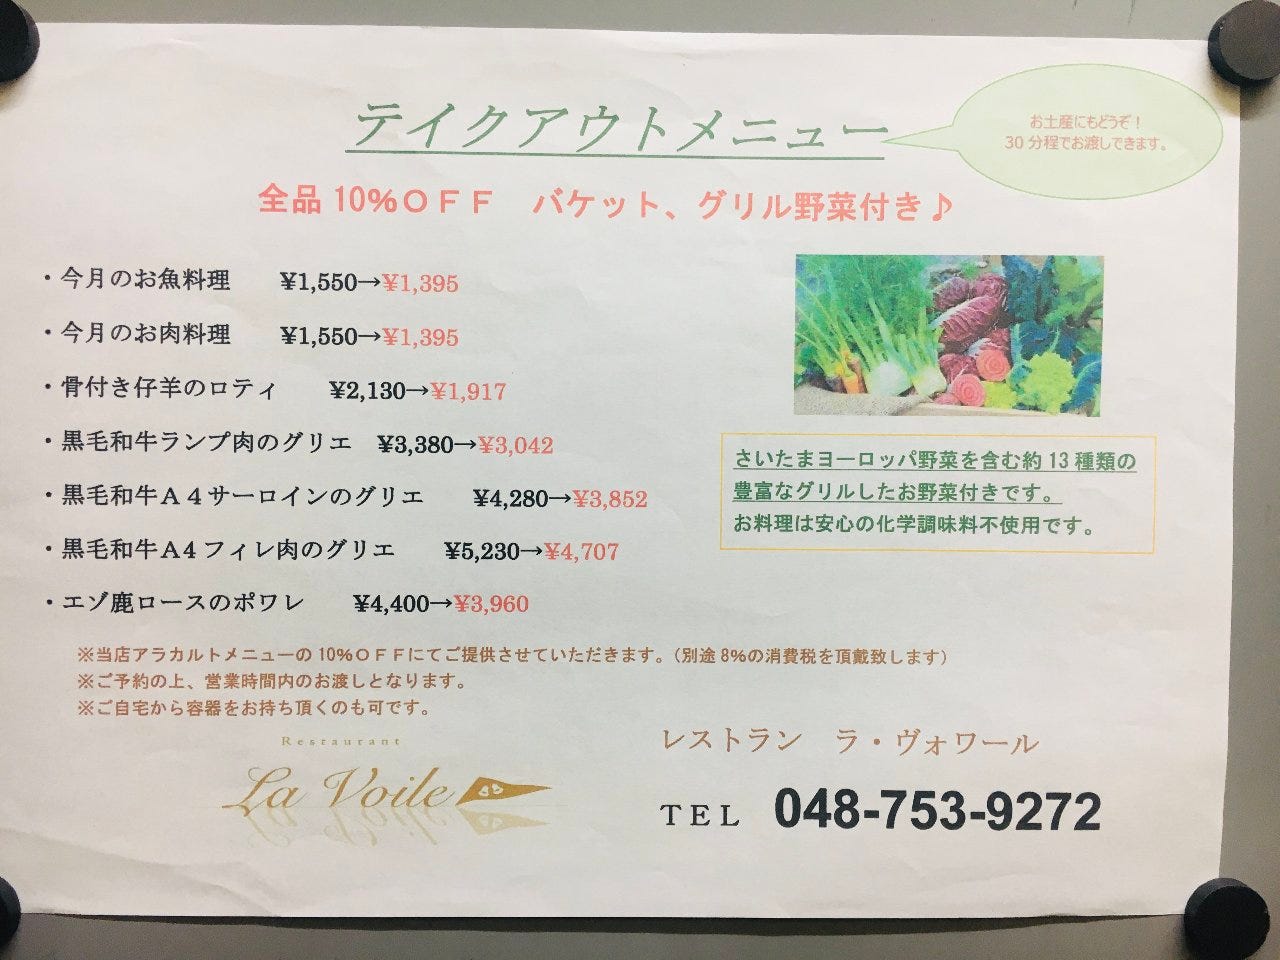 テイクアウトメニュー
お土産にもどうぞ！
30分程でお渡しできます。
全品10%ＯＦＦ　バケット、グリル野菜付き♪
・今月のお魚料理　　¥1,550→¥1,395
・今月のお肉料理　　¥1,550→¥1,395
・骨付き仔羊のロティ　　¥2,130→¥1,917
・黒毛和牛ランプ肉のグリエ　¥3,380→¥3,042
・黒毛和牛Ａ４サーロインのグリエ　　¥4,280→¥3,852
・黒毛和牛A4フィレ肉のグリエ　　¥5,230→¥4,707
・エゾ鹿ロースのポワレ　　¥4,400→¥3,960
さいたまヨーロッパ野菜を含む約13種類の
豊富なグリルしたお野菜付きです。
お料理は安心の化学調味料不使用です。
※当店アラカルトメニューの10%ＯＦＦにてご提供させていただきます。（別途8%の消費税を頂戴致します）
※ご予約の上、営業時間内のお渡しとなります。
※ご自宅から容器をお持ち頂くのも可です。
Restaurant
La Voile
レストラン　ラ・ヴォワール
ＴＥＬ　048-753-9272